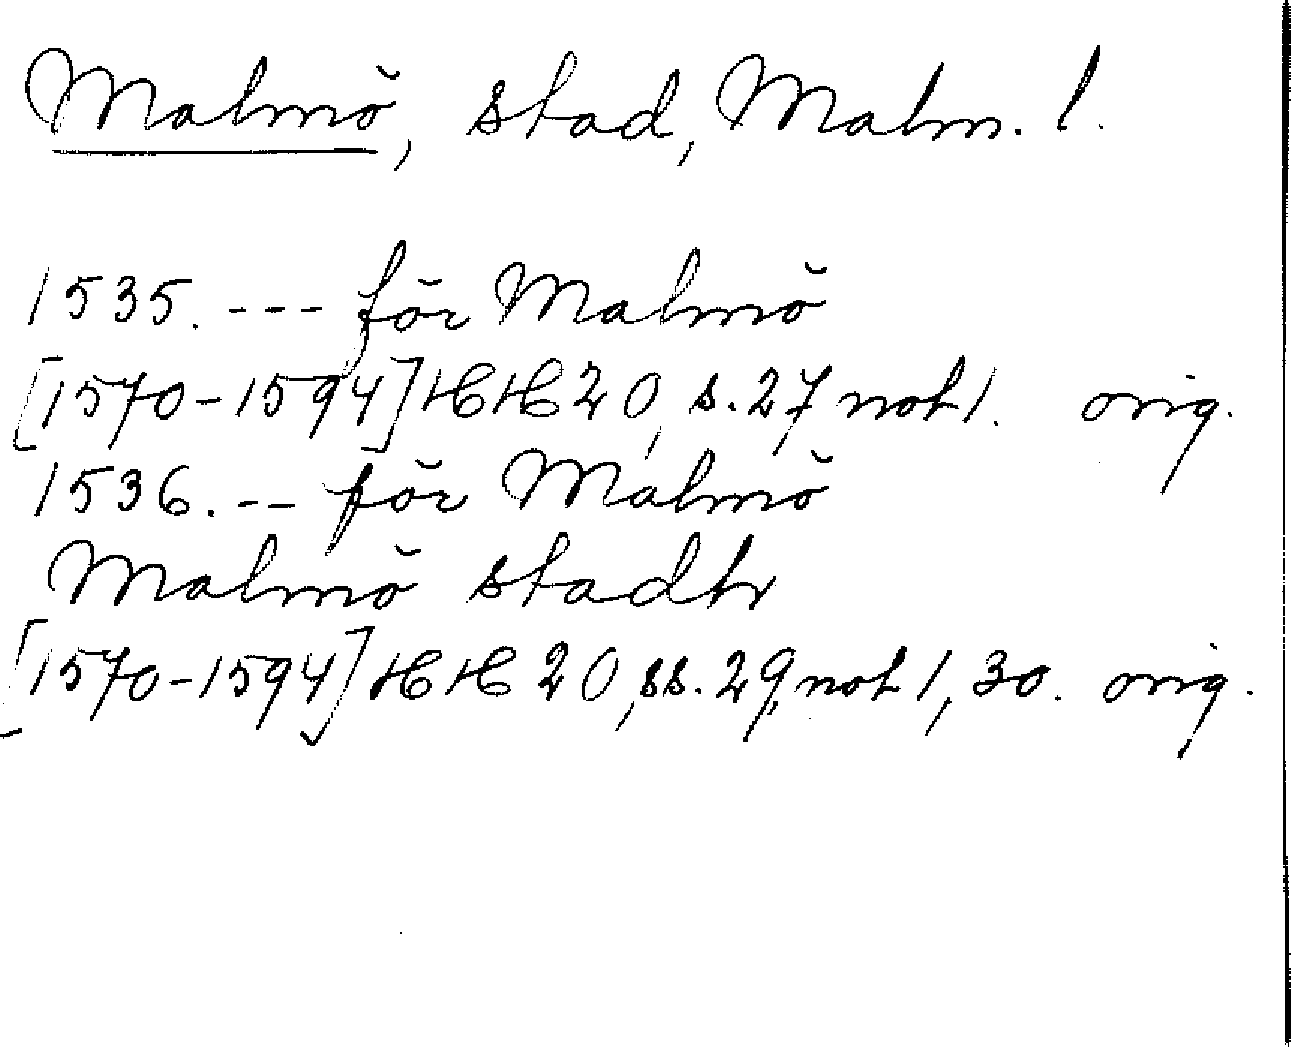 Malmö, stad, Malm. l.
1535. --- för Malmö
[1570-1594] HH 20, s. 27 not 1. orig.
1536. -- för Malmö
Malmö stadh
[1570-1594] HH 20, ss. 29, not 1, 30. orig.